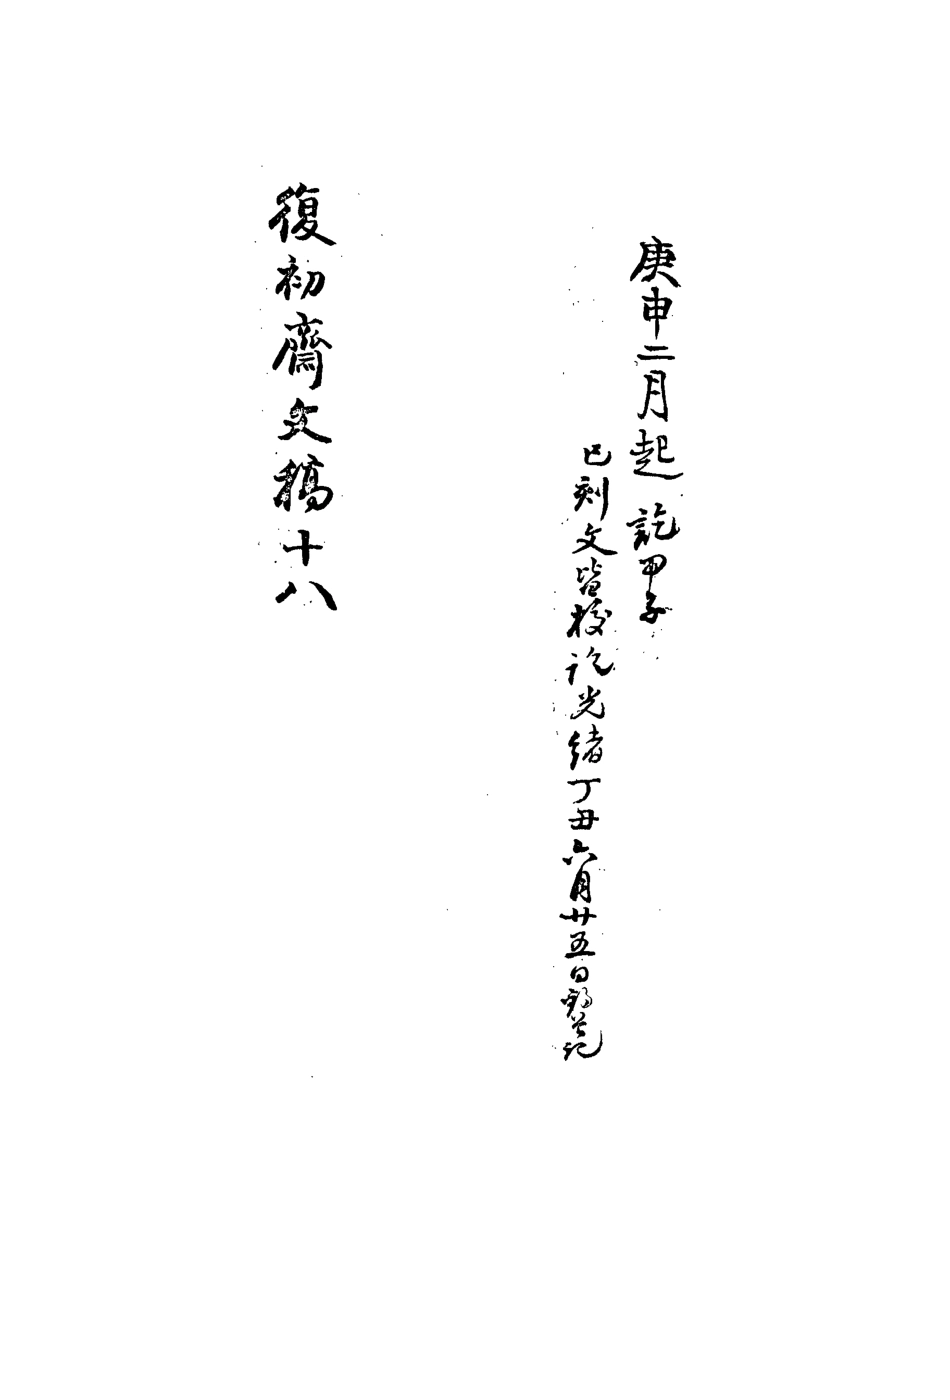 庚申二月起 訖甲子
已刻文皆校訖光緒丁丑六月廿五日記
復初齋文稿十八